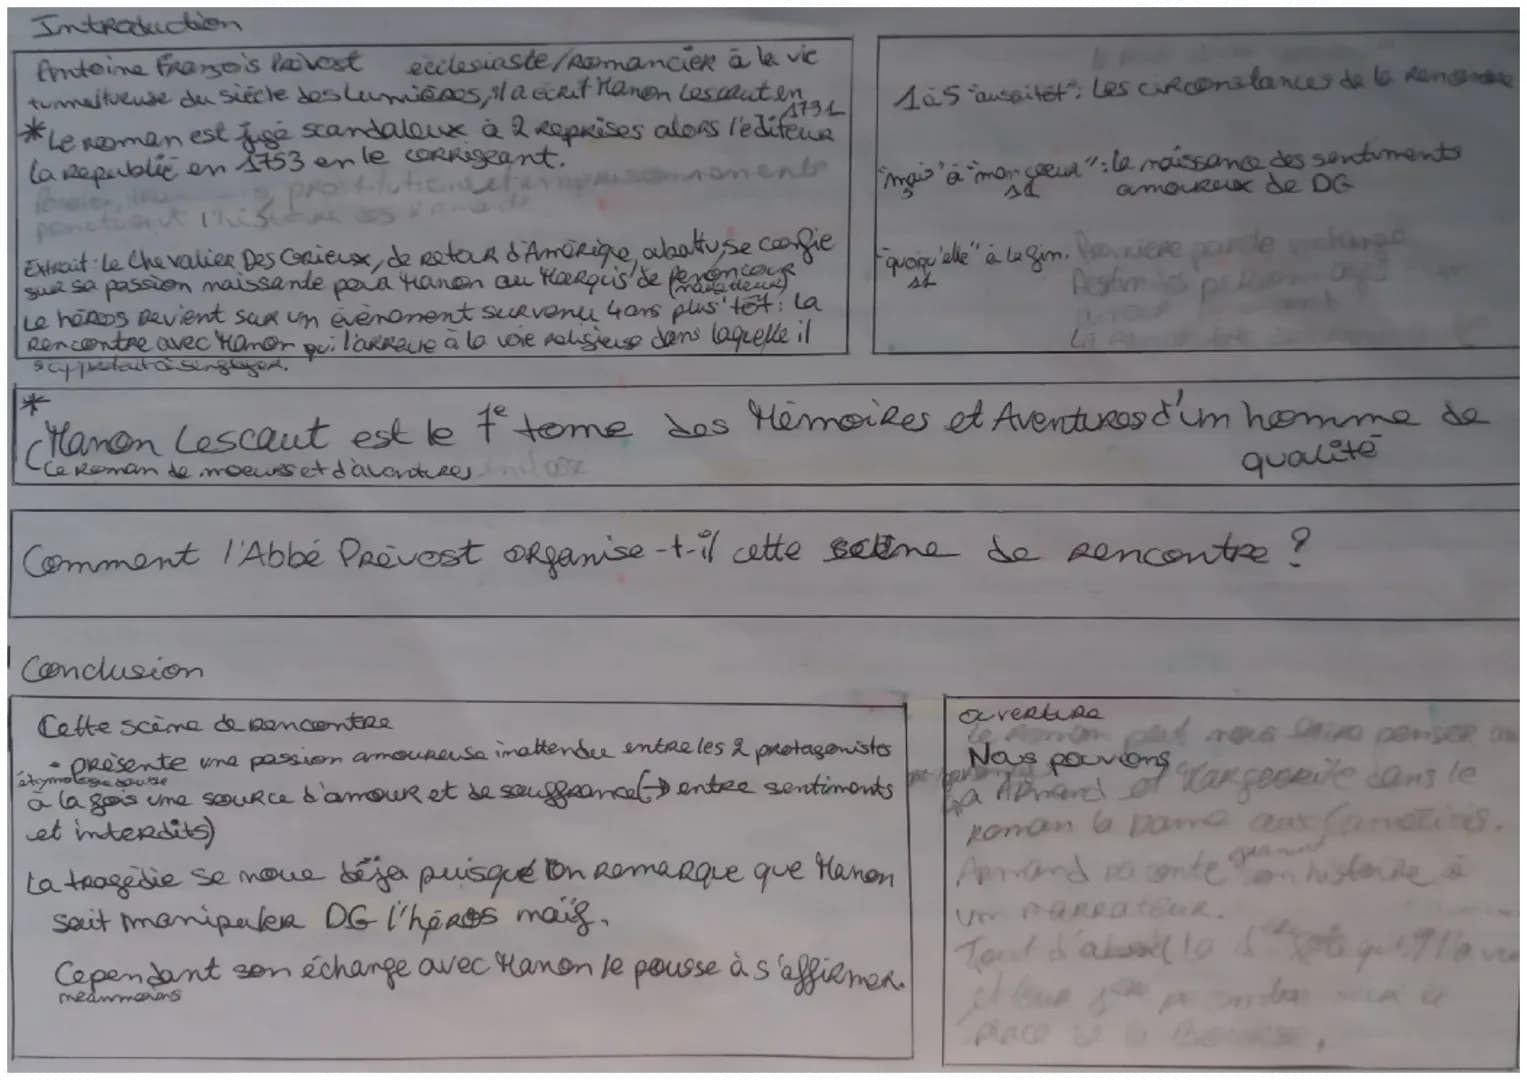 Introduction
Antoine François Prévost ecclesiaste/romancier à la vie
tumultueuse du siècle des Lumières, il a écrit Manon Lescaut en
1731
* Le roman est jugé scandaleux à 2 reprises alors l'éditeur
la republie en 1753 en le corrigeant.
prostitutions et emprisonnements
Extrait : Le Chevalier Des Grieux, de retour d'Amérique, abattu, se confie
sur sa passion naissante pour Manon au Marquis de Renoncour
(narrateur)
Le héros revient sur un évènement survenu 4ans plus tôt : la
rencontre avec Manon qui l'arrache à la voie religieuse dans laquelle il
s'apprêtait à s'engager.
1 à 5 "aussitôt" : Les circonstances de la rencontre
"mais" à "mon coeur" : la naissance des sentiments
5
amoureux de DG
"quoiqu'elle" à la fin. Première parole
*
Manon Lescaut est le 7e tome des Mémoires et Aventures d'un homme de
qualité
Ce roman de moeurs et d'aventures
Comment l'Abbé Prévost organise-t-il cette scène de rencontre ?
Conclusion
Cette scène de rencontre
• présente une passion amoureuse inattendue entre les 2 protagonistes
à la fois une source d'amour et de souffrance (→ entre sentiments
et interdits)
La tragédie se noue déja puisque l'on remarque que Manon
sait manipuler DG l'héros naïf.
Cependant son échange avec Manon le pousse à s'affirmer.
néanmoins
ouverture
Le roman peut nous faire penser au
Nous pouvons
à Armand et Marguerite dans le
roman la Dame aux Camélias.
Armand raconte son histoire à
un narrateur.
Tout d'abord la
place de la Bourse.